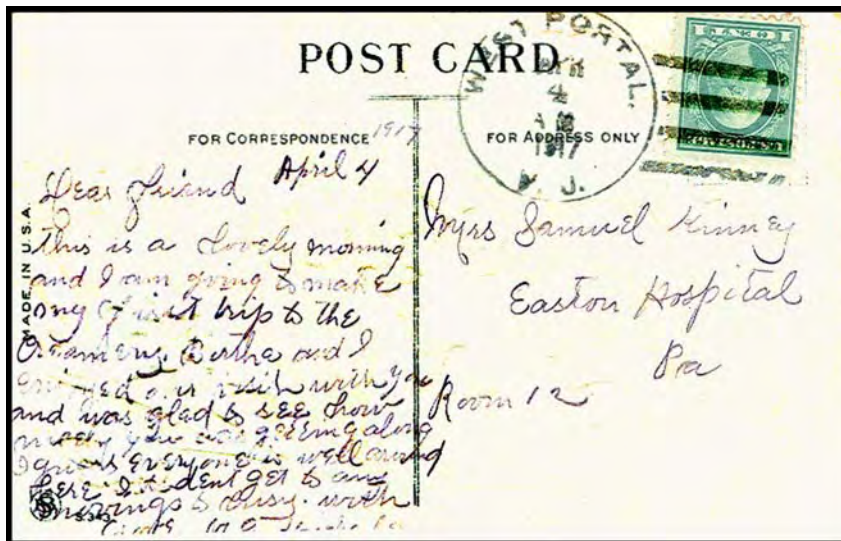 POST CARD
WEST PORTAL.
APR
4
1917
N. J.
FOR CORRESPONDENCE
1917
FOR ADDRESS ONLY
MADE IN U.S.A.
April 4
Dear friend
this is a lovely morning
and I am going to make
my first trip to the
Creamery. Bertha and I
enjoyed our visit with you
and was glad to see how
nicely you was getting along
I guess everyone is well around
here I
get to
busy. with
Mrs Samuel Kinney
Easton Hospital
Pa
Room 12